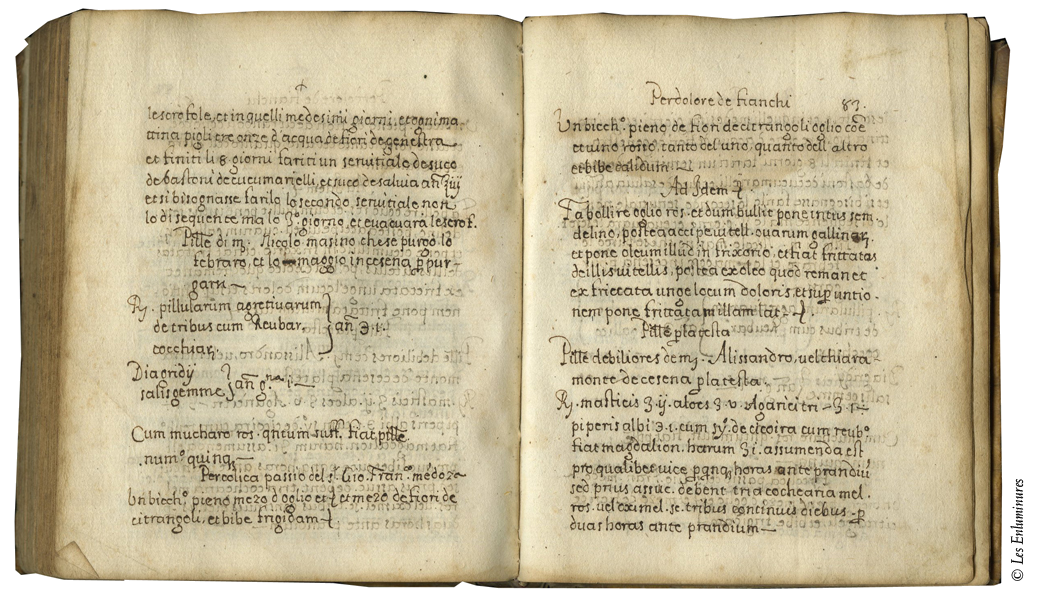 le scrofole, et in quelli medesimi giorni, et ogni ma-
ttina pigli tre onze d'acqua de fiori de genestra
et finiti li 8 giorni fariti un servitiale de suco
de bastoni de cucumarielli, et suco de salvia añ ʒiiij
et si bisognasse farilo lo secondo, servitiale non
lo di sequente ma lo 3º giorno, et evacuara le scrof.
Pille di mr Nicolo masino che se purgò lo
febraro, et lo maggio in cesena p pur-
garsi
R. pillularum agretivarum
de tribus cum Reubar.
cocchiar.
añ ʒ. i.
Diagridij
salis gemme
añ g.
Cum mucharo ros. qntum suff. fiat pille
num.º quinq
Per colica passio del s. Gio. Fran.º
Un bicch.º pieno mezo d'oglio et et mezo de fiori de
citrangoli, et bibe frigidam
Per dolore de fianchi 83.
Un bicch.º pieno de fiori de citrangoli oglio coe
et vino rosso, tanto del uno, quanto dell'altro
et bibe calidum
Ad Idem
Fa bollire oglio ros. et dum bullit pone intus sem-
delino, postea accipe vitell. ovarum gallinar.
et pone oleum illud in frixorio, et fiat frittatas
dellis vitellis, postea ex oleo quod remanet
ex frittata unge locum doloris, et sup untio-
nem pone frittatam illam lat.
Pille p la testa
Pille debiliores de mr Alissandro, vel chiara-
monte de cesena p la testa.
R. masticis ʒ. ij. aloes ʒ. v. Agarici tri ʒ i
piperis albi ʒ. i. cum sy. de cicoira cum reub.º
fiat magdalion. harum ʒ i. assumenda est
pro qualibet vice p qnq horas ante prandiu
sed prius assuc. debent tria cochearia mel.
ros. vel oximel. se. tribus continuis diebus p
duas horas ante prandium
© Les Enluminures